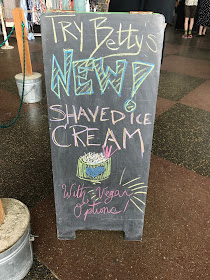 TRY Betty's
NEW!
SHAVED ICE
CREAM
With Vegan
Options!